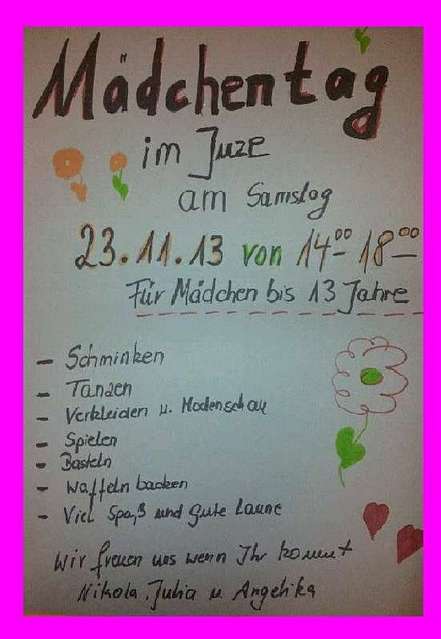 Mädchentag
im Juze
am Samstag
23.11.13 von 14⁰⁰- 18⁰⁰-
Für Mädchen bis 13 Jahre
- Schminken
- Tanzen
- Verkleiden u. Modenschau
- Spielen
- Basteln
- Waffeln backen
- Viel Spaß und gute Laune
Wir freuen uns wenn Ihr kommt
Nikola, Julia u Angelika